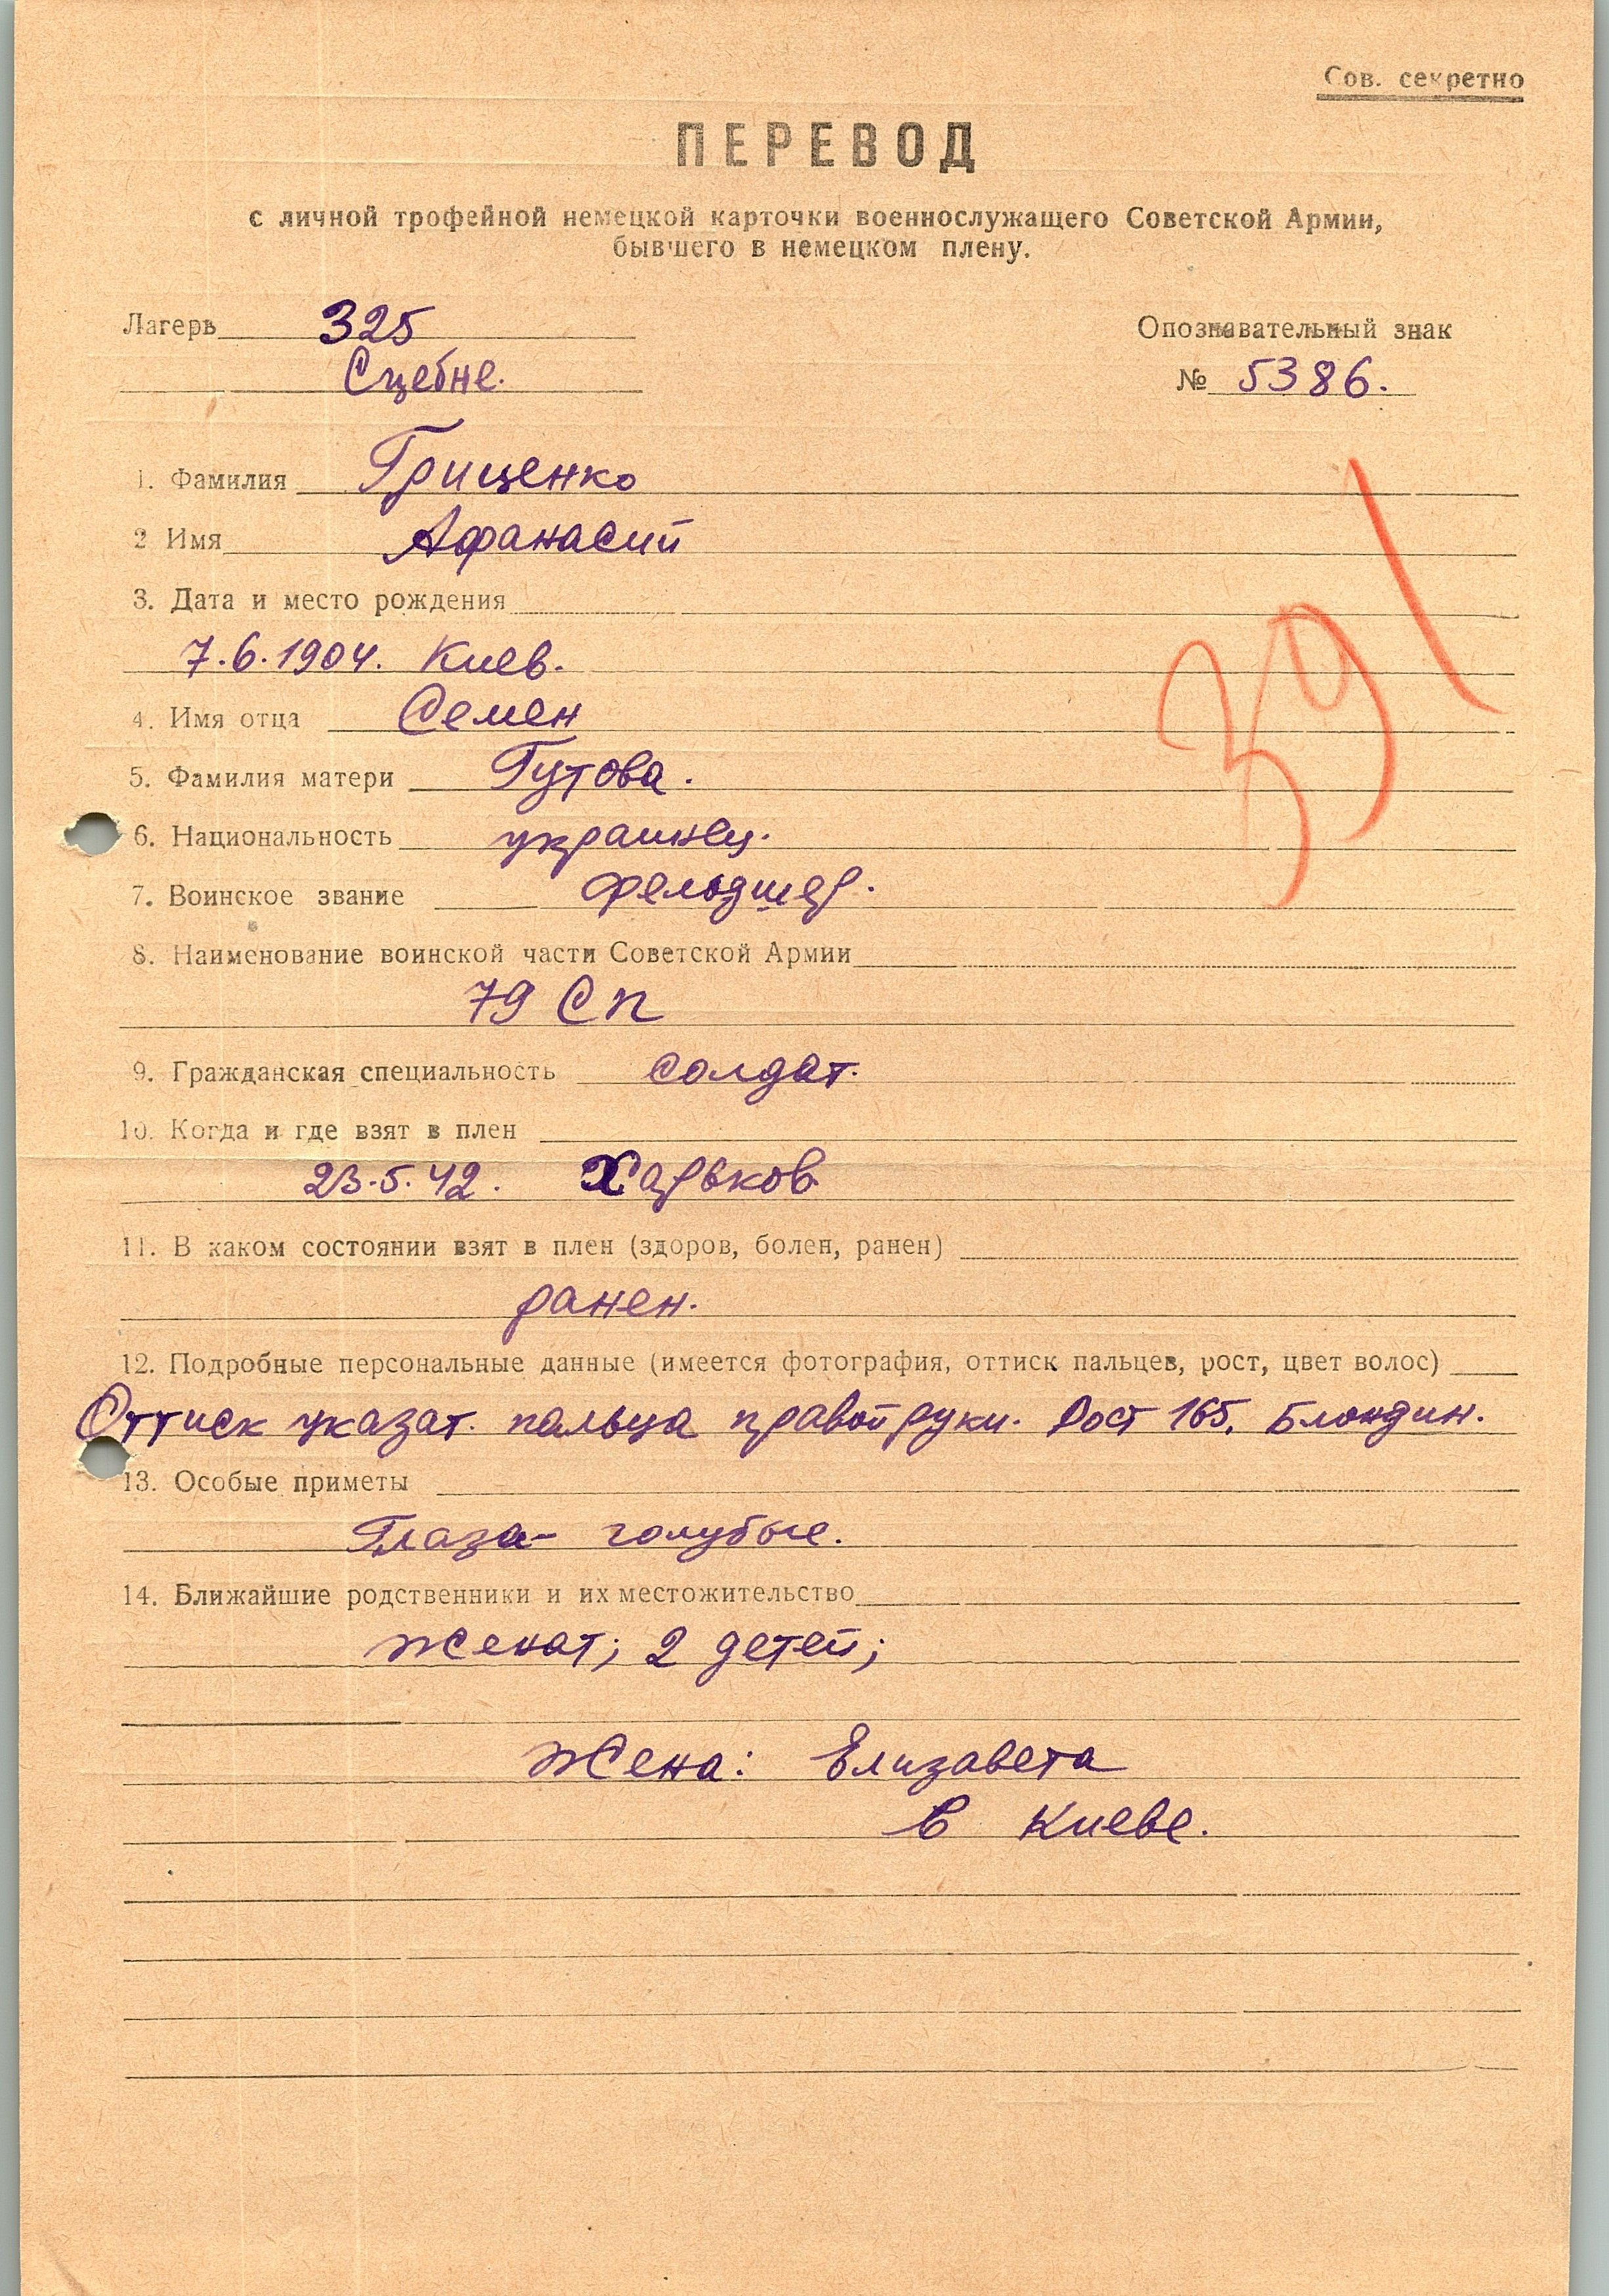 Сов. секретно
ПЕРЕВОД
с личной трофейной немецкой карточки военнослужащего Советской Армии,
бывшего в немецком плену.
Лагерь 325
Сцебне.
Опознавательный знак
№ 5386.
1. Фамилия Гриценко
2 Имя Афанасий
3. Дата и место рождения
7.6.1904. Киев.
4. Имя отца Семен
5. Фамилия матери Гутова.
6. Национальность украинец.
7. Воинское звание фельдшер.
8. Наименование воинской части Советской Армии
79 СП
9. Гражданская специальность солдат.
10. Когда и где взят в плен
23.5.42. Харьков
11. В каком состоянии взят в плен (здоров, болен, ранен)
ранен.
12. Подробные персональные данные (имеется фотография, оттиск пальцев, рост, цвет волос)
Оттиск указат. пальца правой руки. Рост 165. Блондин.
13. Особые приметы
Глаза- голубые.
14. Ближайшие родственники и их местожительство
женат; 2 детей;
Жена: Елизавета
в Киеве.
391